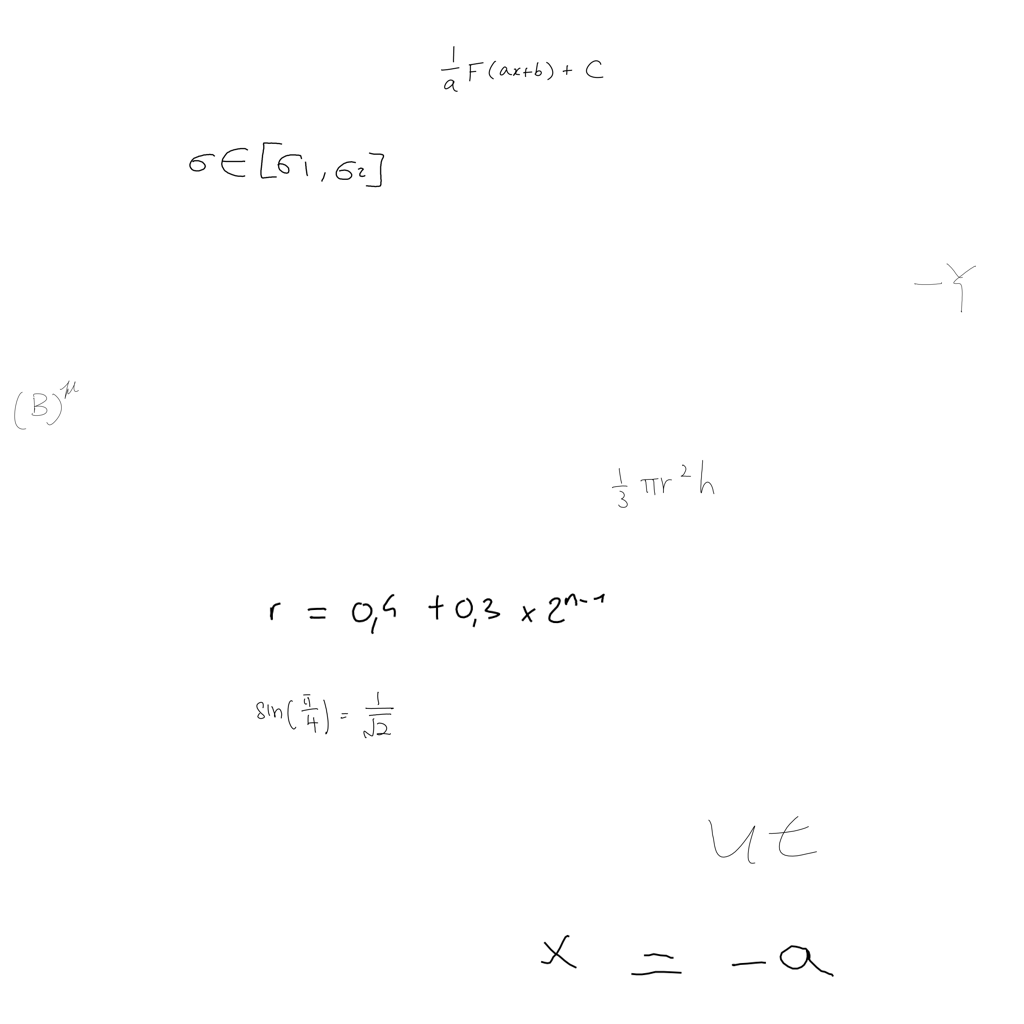 \frac{1}{a} F(ax+b) + C
σ ∈ [σ1, σ2]
-Y
(B)^μ
\frac{1}{3} πr^2 h
r = 0,4 + 0,3 × 2^{n-1}
sin(\frac{π}{4}) = \frac{1}{\sqrt{2}}
ut
x = -a